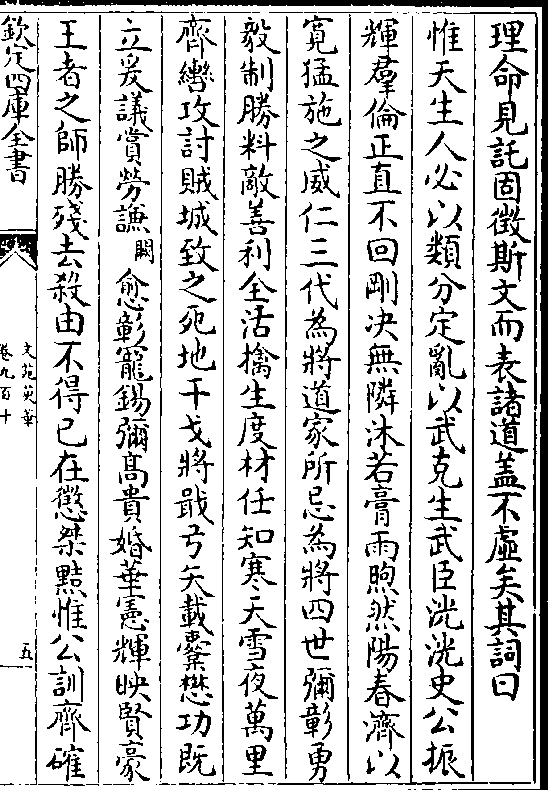 理命見託固徵斯文而表諸道盖不虛矣其詞曰
惟天生人必以類分定亂以武克生武臣洸洸史公振
輝羣倫正直不回剛決無隣沐若膏雨煦然陽春濟以
寛猛施之威仁三代為將道家所忌為將四世彌彰勇
毅制勝料敵善利全活擒生度材任知寒天雪夜萬里
齊轡攻討賊城致之死地干戈將戢弓矢載櫜懋功既
立爰議賞勞謙闕愈彰寵錫彌髙貴婚華憲輝映賢豪
王者之師勝殘去殺由不得已在懲桀黠惟公訓齊確
欽定四庫全書
文苑英華
卷九百十
五